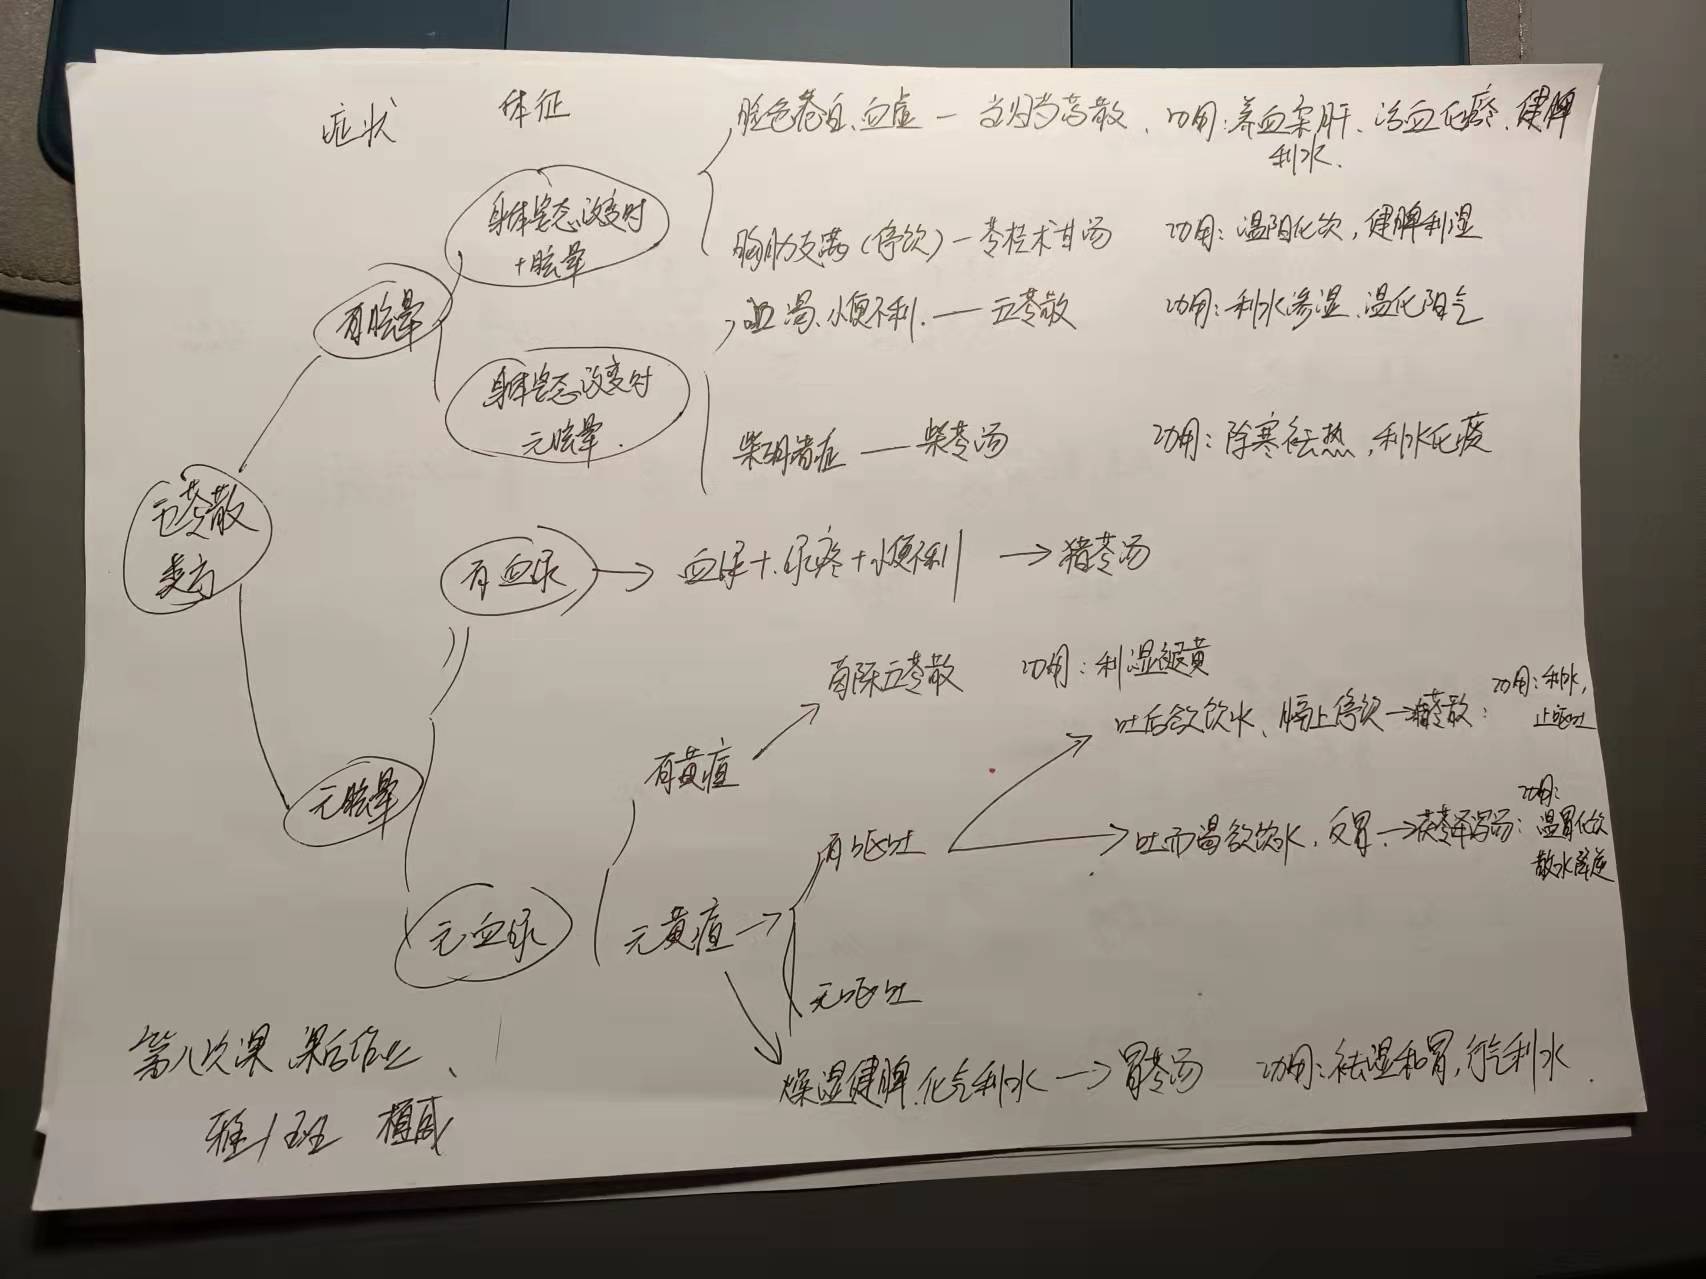 症状
体征
脸色苍白、血虚 — 当归芍药散、功用：养血柔肝、活血化瘀、健脾
利水.
身体姿态改变时
+眩晕
胸胁支满（停饮）— 苓桂术甘汤 功用：温阳化饮，健脾利湿
有眩晕
口渴、小便不利. — 五苓散 功用：利水渗湿、温化阳气
身体姿态改变时
无眩晕.
柴胡诸症 — 柴苓汤 功用：除寒祛热，利水化痰
五苓散
类方
有血尿 → 血尿+尿疼+小便不利 → 猪苓汤
茵陈五苓散 功用：利湿退黄
吐后欲饮水、膈上停饮→猪苓散： 功用：利水，
止呕吐
有黄疸
无眩晕
有呕吐
吐而渴欲饮水，反胃→茯苓泽泻汤： 功用：
温胃化饮
散水降逆
无血尿
无黄疸 →
无呕吐
第八次课 课后作业、
燥湿健脾.化气利水 → 胃苓汤 功用：祛湿和胃，行气利水.
班